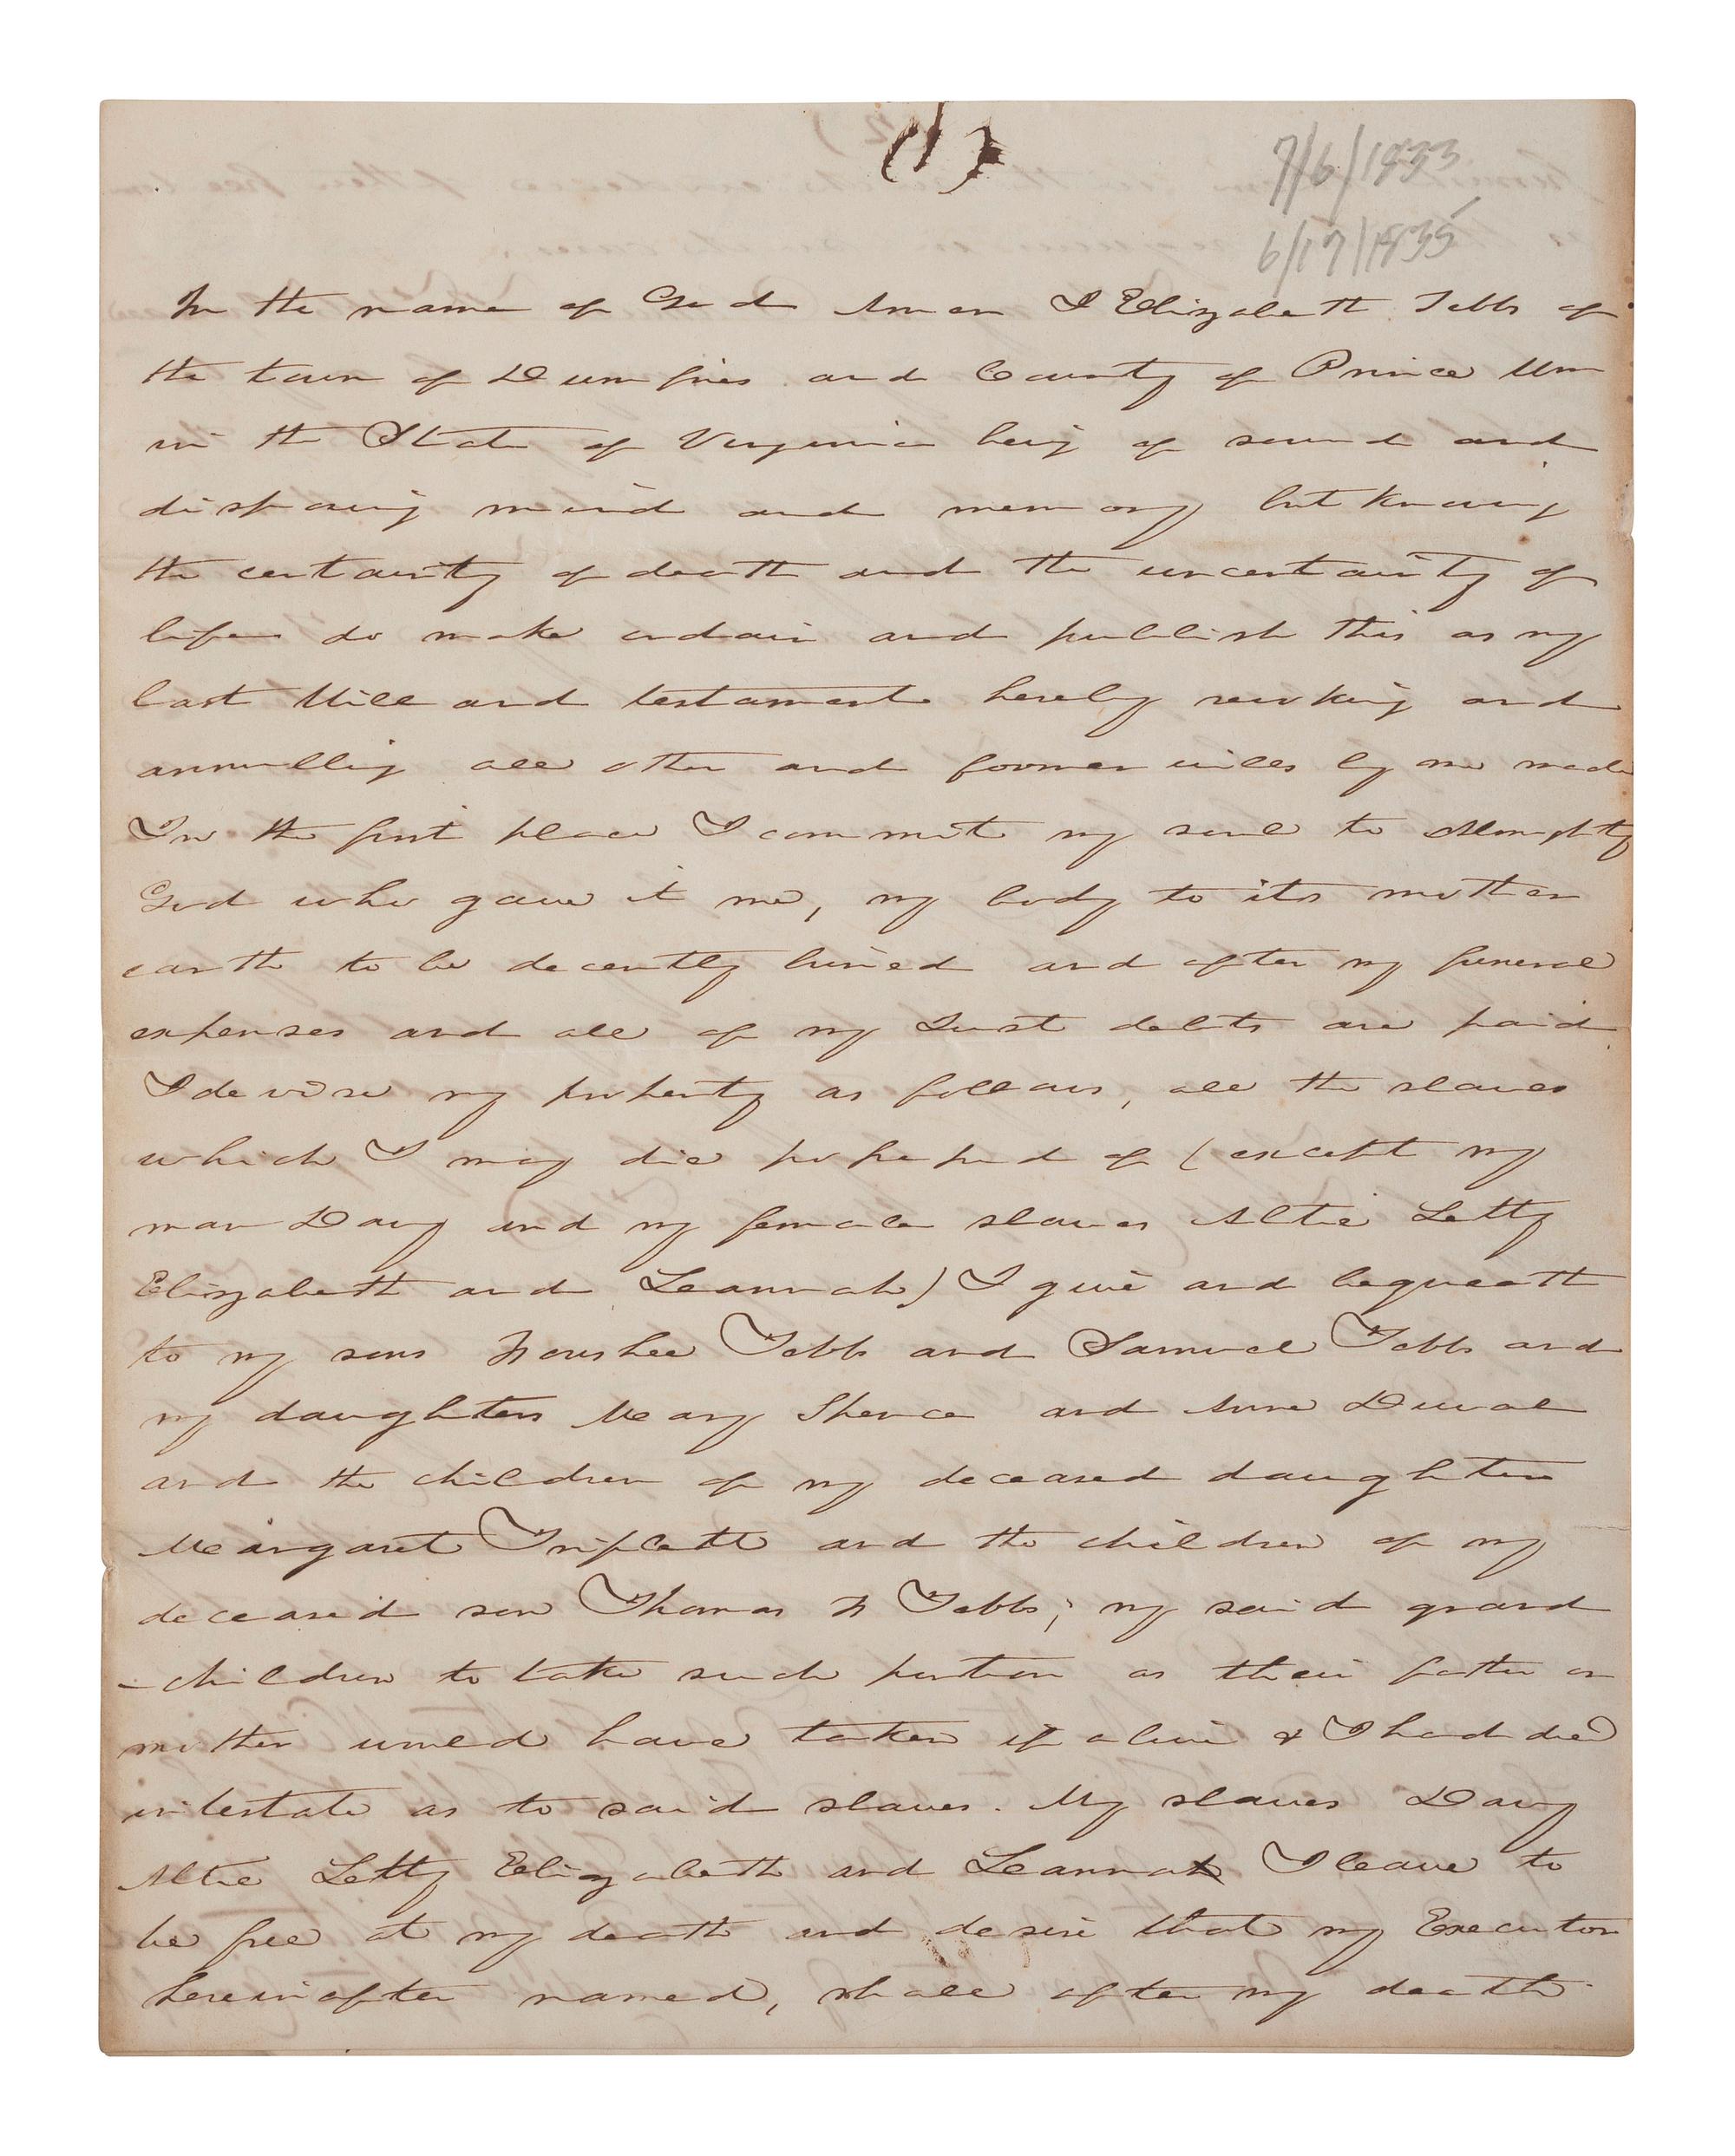 (1)
7/6/1833
6/17/1835
In the name of God Amen I Elizabeth Tebbs of
the town of Dumfries and County of Prince Wm
in the State of Virginia being of sound and
disposing mind and memory but knowing
the certainty of death and the uncertainty of
life do make ordain and publish this as my
last Will and testament hereby revoking and
annulling all other and former wills by me made
In the first place I commit my soul to Almighty
God who gave it me, my body to its mother
earth to be decently buried and after my funeral
expenses and all of my Just debts are paid
I devise my property as follows, all the slaves
which I may die possessed of (except my
man Davy and my female slaves Altie Letty
Elizabeth and Leannah) I give and bequeath
to my sons Foushee Tebbs and Samuel Tebbs and
my daughters Mary Spence and Anne Duval
and the children of my deceased daughter
Margaret Triplett and the children of my
deceased son Thomas F Tebbs; my said grand
-children to take such portion as their father or
mother would have taken if alive & I had died
intestate as to said slaves. My slaves Davy
Altie Letty Elizabeth and Leannah I leave to
be free at my death and desire that my Executor
hereinafter named, shall after my death